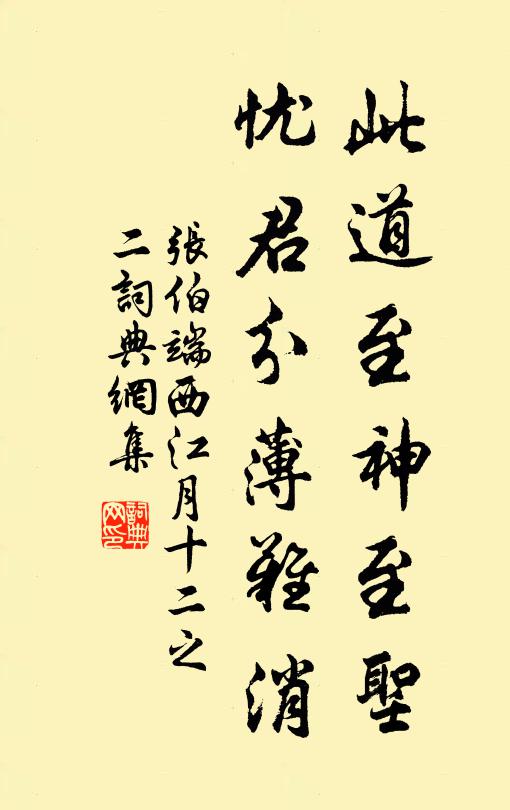 此道至神至聖
忧君分薄難消
張伯端西江月十二之
二詞典網集
詞典网印